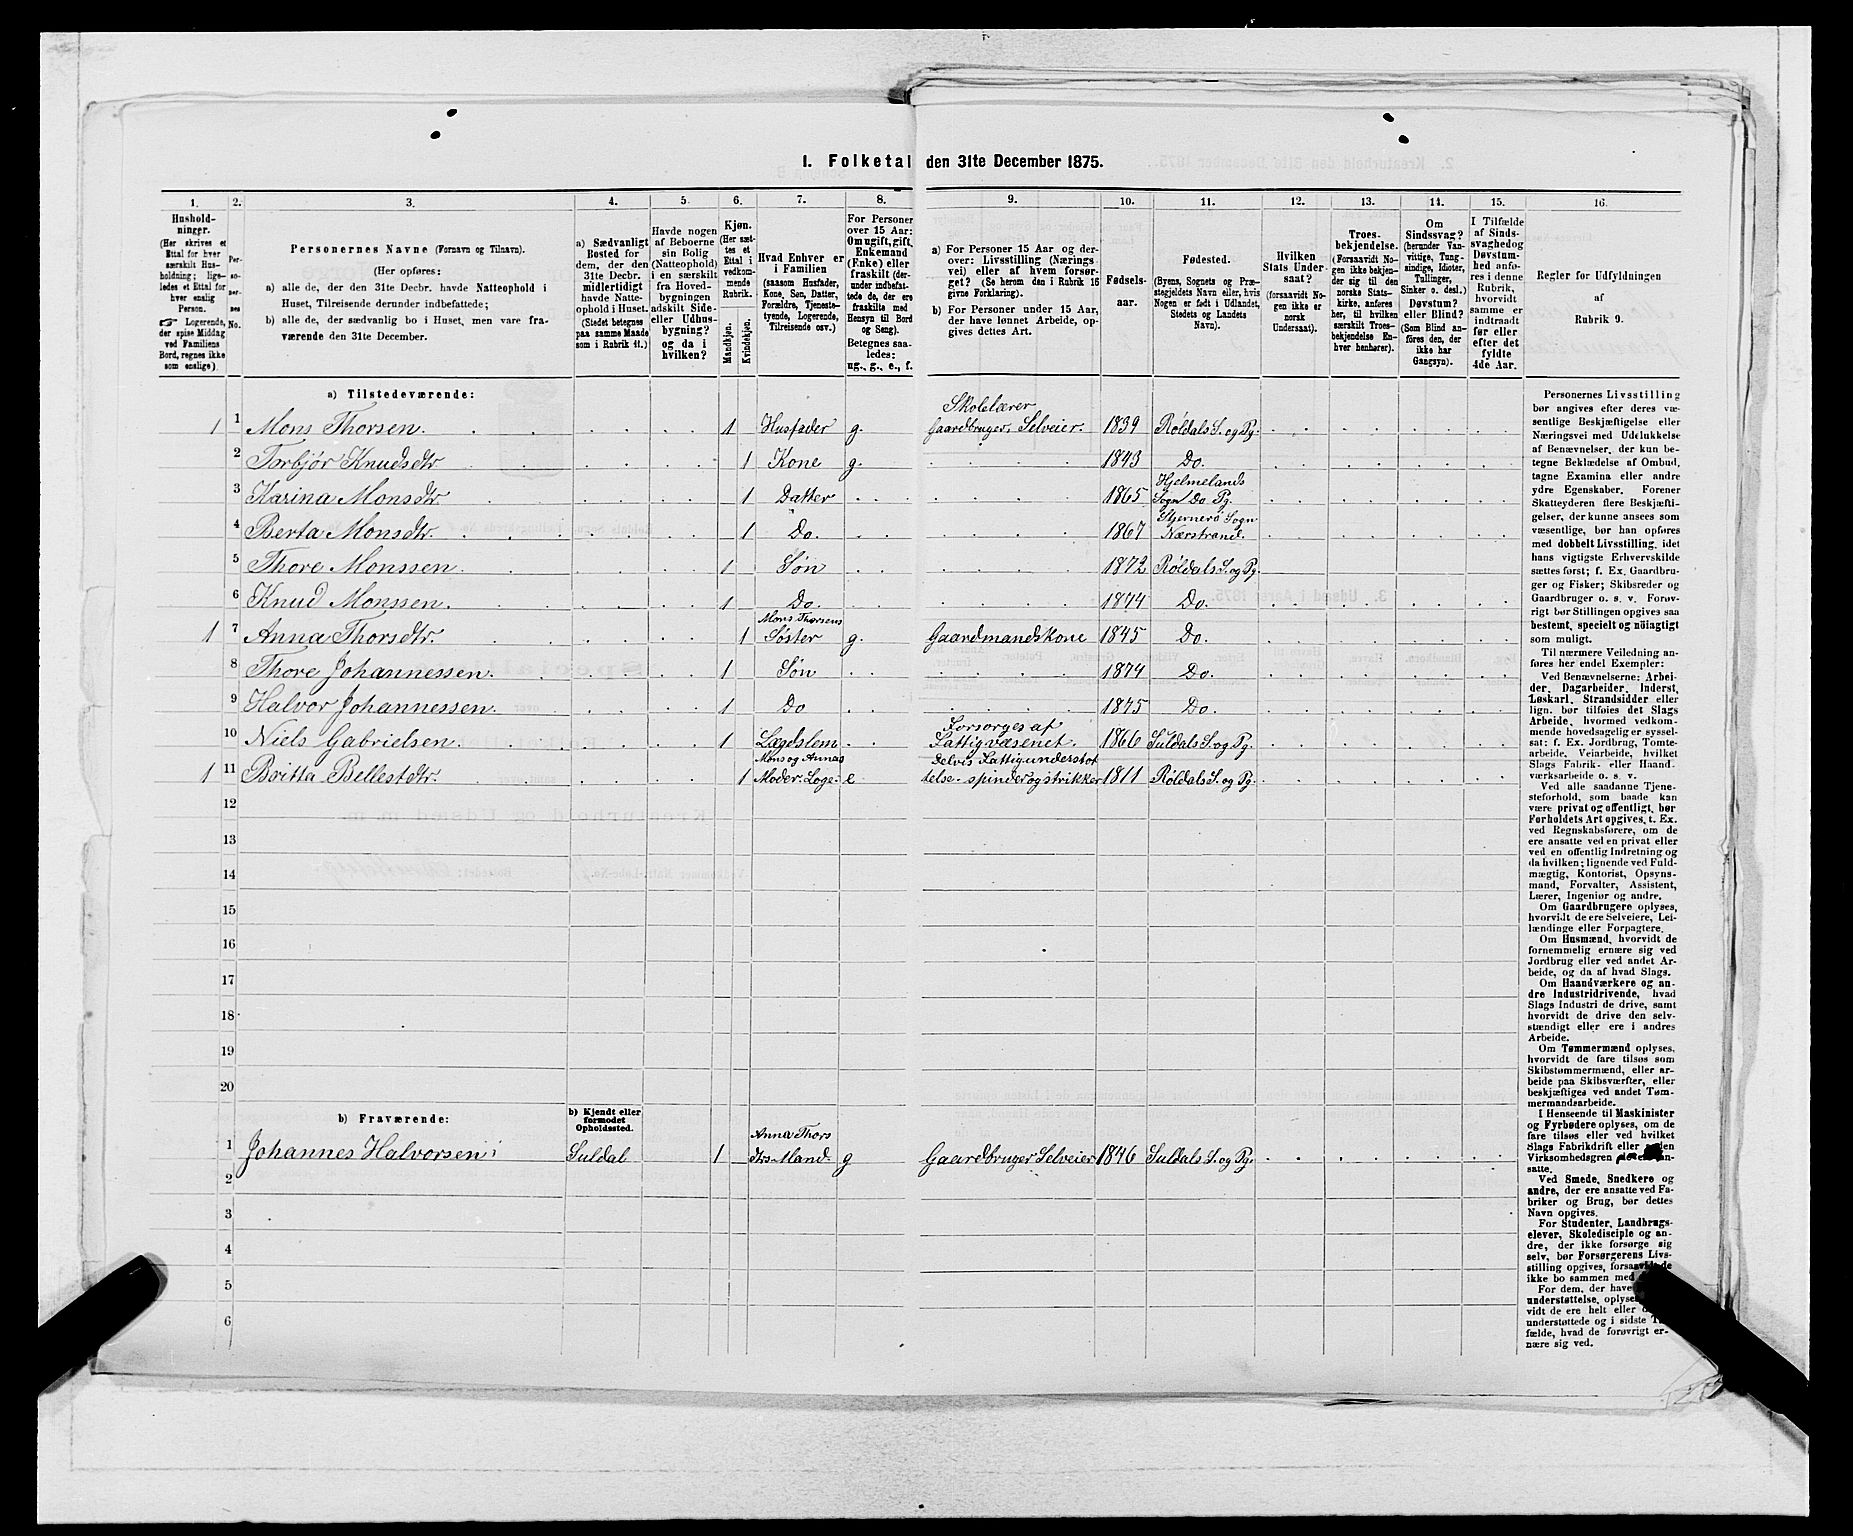 1. Folketal den 31te December 1875.
1. 2. 3. 4. 5. 6. 7. 8. 9. 10. 11. 12. 13. 14. 15. 16.
Hushold-
ninger.
(Her skrives et
Ettal for hver
særskilt Hus-
holdning; lige-
ledes et Ettal for
hver enslig
Person.
☞ Logerende,
der spise Middag
ved Familiens
Bord, regnes ikke
som enslige).
Per-
so-
ner-
nes
No.
Personernes Navne (Fornavn og Tilnavn).
(Her opføres:
a) alle de, der den 31te Decbr. havde Natteophold i
Huset, Tilreisende derunder indbefattede;
b) alle de, der sædvanlig bo i Huset, men vare fra-
værende den 31te December.
a) Sædvanligt
Bosted for
dem, der den
31te Decbr.
midlertidigt
havde Natte-
ophold i Huset.
(Stedet betegnes
paa samme Maade
som i Rubrik 11.)
Havde nogen
af Beboerne
sin Bolig
(Natteophold)
i en særskilt
fra Hoved-
bygningen
adskilt Side-
eller Udhus-
bygning?
og da i
hvilken?
Kjøn.
(Her sæt-
tes et
Ettal i
vedkom-
mende
Rubrik.
Mandkjøn.
Kvindekjøn.
Hvad Enhver er
i Familien
(saasom Husfader,
Kone, Søn, Datter,
Forældre, Tjeneste-
tyende, Logerende,
Tilreisende osv.)
For Personer
over 15 Aar:
Om ugift, gift,
Enkemand
(Enke) eller
fraskilt (der-
under indbefat-
tede de, der ere
fraskilte med
Hensyn til Bord
og Seng).
Betegnes saa-
ledes:
ug., g., e., f.
a) For Personer 15 Aar og der-
over: Livsstilling (Nærings-
vei) eller af hvem forsør-
get? (Se herom den i Rubrik 16
givne Forklaring).
b) For Personer under 15 Aar,
der have lønnet Arbeide, op-
gives dettes Art.
Fødsels-
aar.
Fødested.
(Byens, Sognets og Præ-
stegjeldets Navn eller, hvis
Nogen er født i Udlandet,
Stedets og Landets
Navn).
Hvilken
Stats Under-
saat?
(forsaavidt No-
gen ikke er
norsk
Undersaat).
Troes-
bekjendelse.
(Forsaavidt No-
gen ikke bekjen-
der sig til den
norske Stats-
kirke, anføres
her, til hvilken
særskilt Troes-
bekjendelse En-
hver henhører).
Om
Sindssvag?
(herunder Van-
vittige, Tung-
sindige, Idioter,
Tullinger,
Sinker o. desl.)
Døvstum?
eller Blind?
(Som Blind an-
føres den, der
ikke har
Gangsyn).
I Tilfælde
af Sinds-
svaghed og
Døvstum-
hed anfø-
res i denne
Rubrik,
hvorvidt
samme er
indtraadt
før eller
efter det
fyldte
4de Aar.
Regler for Udfyldningen
af
Rubrik 9.
a) Tilstedeværende:
Skolelærer
1 1 Mons Thorsen. 1 Husfader g. Gaardbruger, Selveier. 1839 Røldals S. og Pg.
2 Torbjør Knudsdtr 1 Kone g. 1843 Do.
Hjelmelands
3 Karina Monsdtr 1 Datter 1865 Sogn Do Pg.
Stjernerø Sogn
4 Berta Monsdtr. 1 Do. 1867 Nærstrand.
5 Thore Monssen. 1 Søn 1872 Røldals S. og Pg.
6 Knud Monssen. 1 Do. 1874 Do.
Mons Thorsens
1 7 Anna Thorsdtr. 1 Søster g. Gaardmandskone 1845 Do.
8 Thore Johannessen. 1 Søn 1874 Do.
9 Halvor Johannessen. 1 Do 1875 Do.
Forsorges af
10 Niels Gabrielsen 1 Lægdslem Fattigvæsenet. 1866 Suldals S. og Pg.
Mons og Annas Delvis Fattigunderstot
1 11 Britta Bellestdtr. 1 Moder: Loge: e telse - spinder og strikker 1811 Røldals S. og Pg.
12
13
14
15
16
17
18
19
20
b) Fraværende:
b) Kjendt eller
formodet
Opholdssted.
Anna Thors
1 Johannes Halvorsen Suldal 1 dtrs Mand. g Gaardbruger Selveier 1846 Suldals S. og Pg.
2
3
4
5
6
Personernes Livsstilling
bør angives efter deres væ-
sentlige Beskjæftigelse eller
Næringsvei med Udelukkelse
af Benævnelser, der kun be-
tegne Beklædelse af Ombud,
tagne Examina eller andre
ydre Egenskaber. Forener
Skatteyderen flere Beskjæfti-
gelser, der kunne ansees som
væsentlige, bør han opføres
med dobbelt Livsstilling, idet
hans vigtigste Erhvervskilde
sættes først; f. Ex. Gaardbru-
ger og Fisker; Skibsreder og
Gaardbruger o. s. v. Forøv-
rigt bør Stillingen opgives saa
bestemt, specielt og nøiagtigt
som muligt.
Til nærmere Veiledning an-
føres her endel Exempler:
Ved Benævnelserne: Arbei-
der, Dagarbeider, Inderst,
Løskarl, Strandsidder eller
lign. bør tilføies det Slags
Arbeide, hvormed vedkom-
mende hovedsagelig er syssel-
sat: f. Ex. Jordbrug, Tomte-
arbeide, Veiarbeide, hvilket
Slags Fabrik- eller Haand-
værksarbeide o. s. v.
Ved alle saadanne Tjene-
steforhold, som baade kan
være privat og offentligt, bør
Forholdets Art opgives, t. Ex.
ved Regnskabsførere, om de
ere ansatte ved en privat eller
ved en offentlig Indretning og
da hvilken; lignende ved Fuld-
mægtig, Kontorist, Opsyns-
mand, Forvalter, Assistent,
Lærer, Ingeniør og andre.
Om Gaardbrugere oplyses,
hvorvidt de ere Selveiere, Lei-
lændinge eller Forpagtere.
Om Husmænd, hvorvidt de
fornemmelig ernære sig ved
Jordbrug eller ved andet Ar-
beide, og da af hvad Slags.
Om Haandværkere og an-
dre Industridrivende, hvad
Slags Industri de drive, samt
hvorvidt de drive den selv-
stændigt eller ere i andres
Arbeide.
Om Tømmermænd oplyses,
hvorvidt de fare tilsøs som
Skibstømmermænd, eller ar-
beide paa Skibsværfter, eller
beskjæftiges ved andet Tøm-
mermandsarbeide.
I Henseende til Maskinister
og Fyrbødere oplyses, om de
fare tilsøs eller ved hvilket
Slags Fabrikdrift eller anden
Virksomhedsgren de ere an-
satte.
Ved Smede, Snedkere og
andre, der ere ansatte ved Fa-
briker og Brug, bør dettes
Navn opgives.
For Studenter, Landbrugs-
elever, Skoledisciple og an-
dre, der ikke forsørge sig
selv, bør Forsørgerens Livs-
stilling opgives, forsaavidt de
ikke bo sammen med
For dem, der have
understøttelse, oplyses
vidt de ere helt eller
understøttede og i sidste
fælde, hvad de forøvrigt er-
nære sig ved.